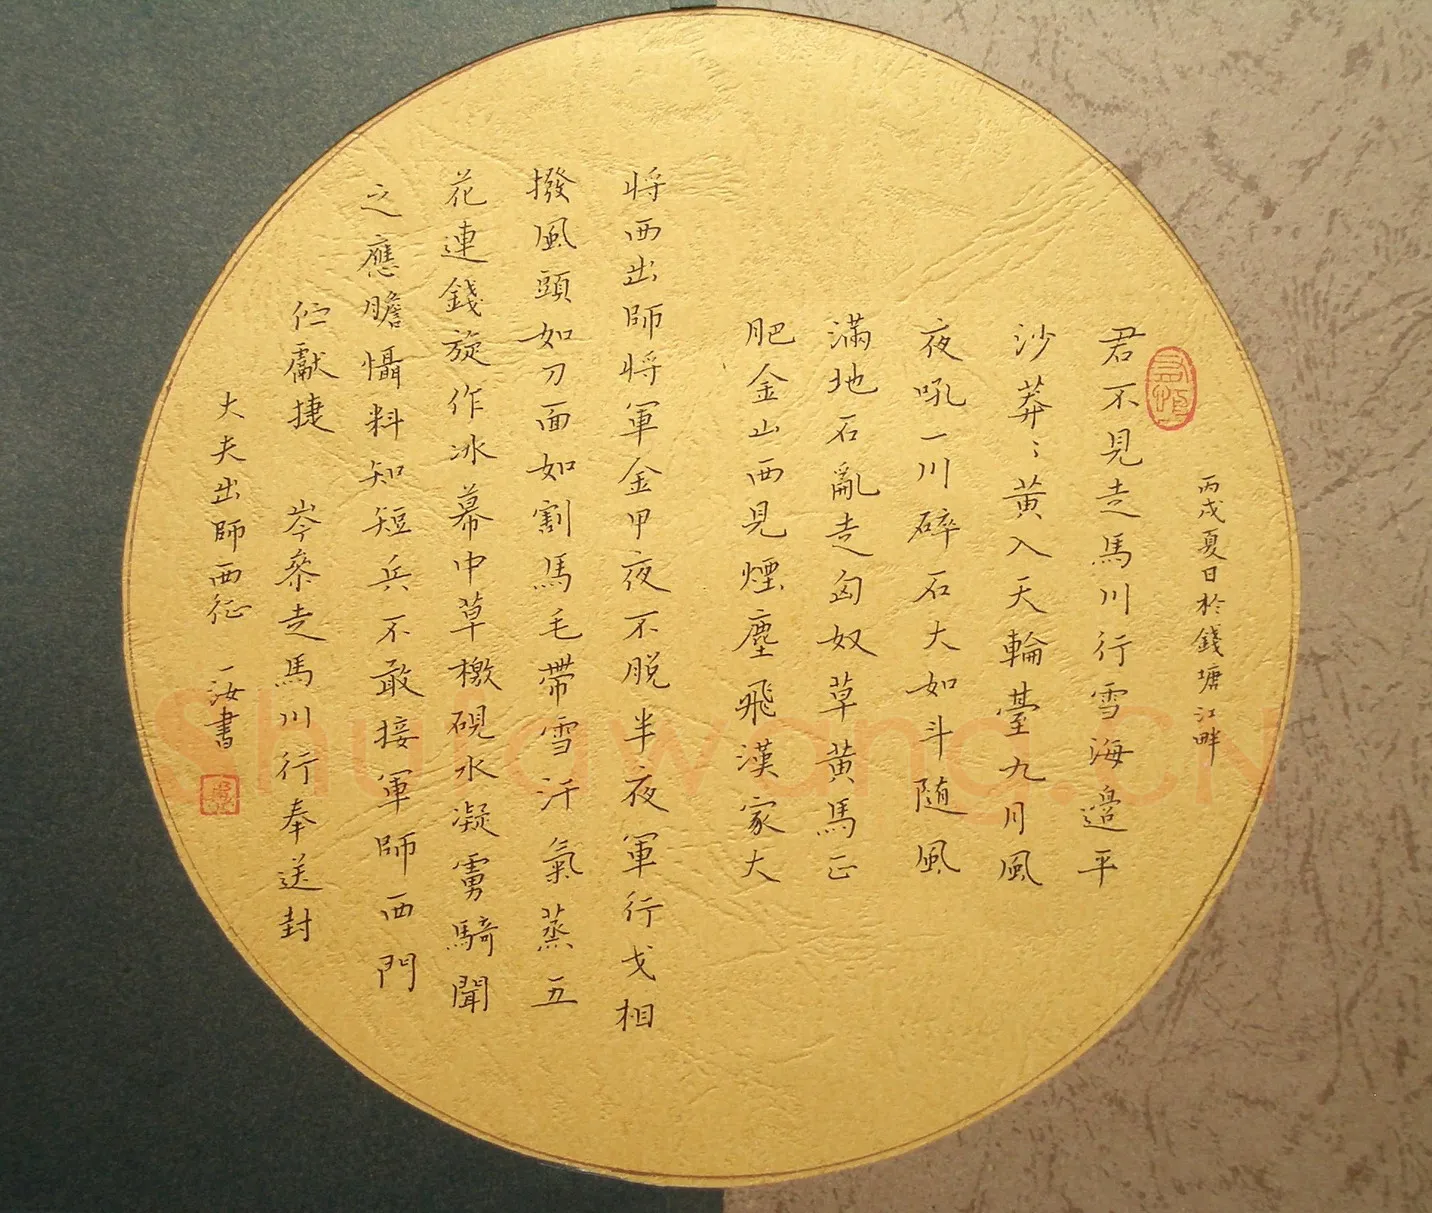 丙戌夏日於錢塘江畔
君不見走馬川行雪海邊平
沙莽〻黃入天輪臺九月風
夜吼一川碎石大如斗随風
滿地石亂走匈奴草黃馬正
肥金山西見煙塵飛漢家大
将西出師将軍金甲夜不脫半夜軍行戈相
撥風頭如刀面如割馬毛帶雪汗氣蒸五
花連錢旋作冰幕中草檄硯水凝虜騎聞
之應膽懾料知短兵不敢接軍師西門
佇獻捷 岑參走馬川行奉送封
大夫出師西征 一汝書
Shufawang.CN